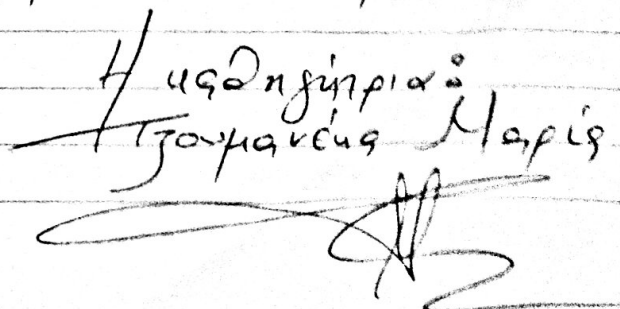 Η καθηγήτρια:
Τζουμανέκα Μαρία